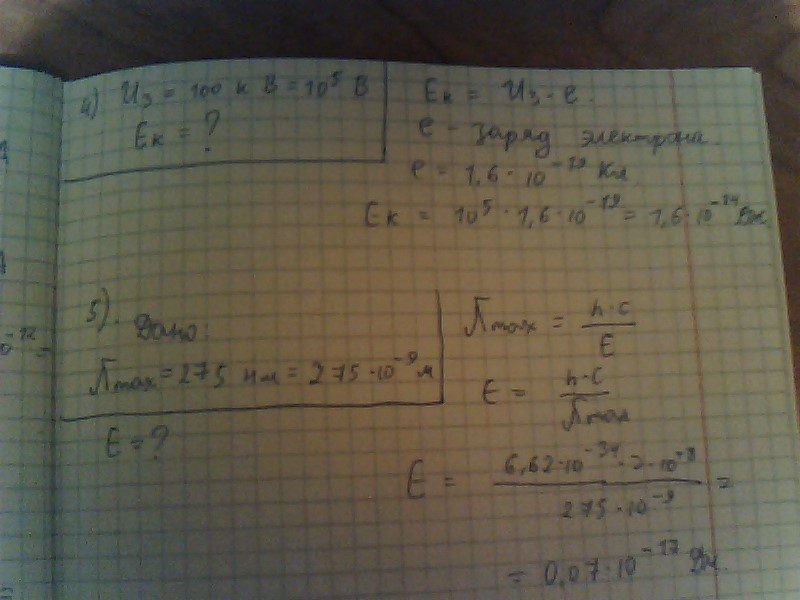 4) Uз = 100 к В = 10⁵ В
Eк = ?
Eк = Uз · e.
e - заряд электрона.
e = 1,6 · 10⁻¹⁹ Кл
Eк = 10⁵ · 1,6 · 10⁻¹⁹ = 1,6 · 10⁻¹⁴ Дж
5). Дано:
λmax = 275 нм = 275 · 10⁻⁹ м
E = ?
λmax = h·c / E
E = h·c / λmax
E = 6,62 · 10⁻³⁴ · 2 · 10⁻⁸ / 275 · 10⁻⁹ =
= 0,07 · 10⁻¹⁷ Дж.